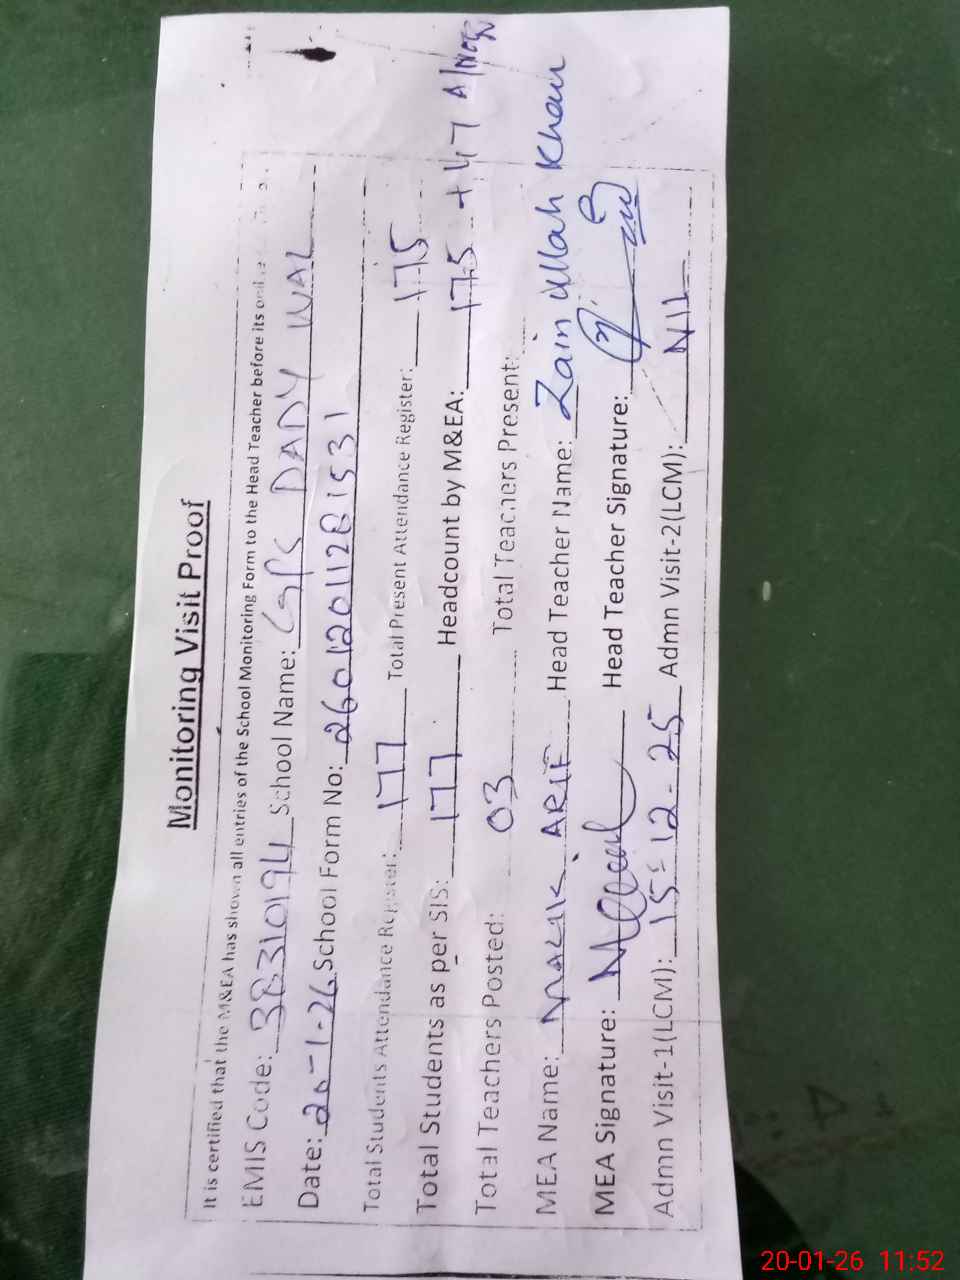 Monitoring Visit Proof
It is certified that the M&EA has shown all entries of the School Monitoring Form to the Head Teacher before its
EMIS Code: 38310194 School Name: GPS DADY WAL
Date: 20-1-26 School Form No: 26012011281531
Total Students Attendance Register: 177 Total Present Attendance Register: 175
Total Students as per SIS: 177 Headcount by M&EA: 175 + 47 A/
Total Teachers Posted: 03 Total Teachers Present:
MEA Name: MALIK ARIF Head Teacher Name: Zain Ullah Khan
MEA Signature: Head Teacher Signature:
Admn Visit-1(LCM): 15-12-25 Admn Visit-2(LCM): NIL
20-01-26 11:52